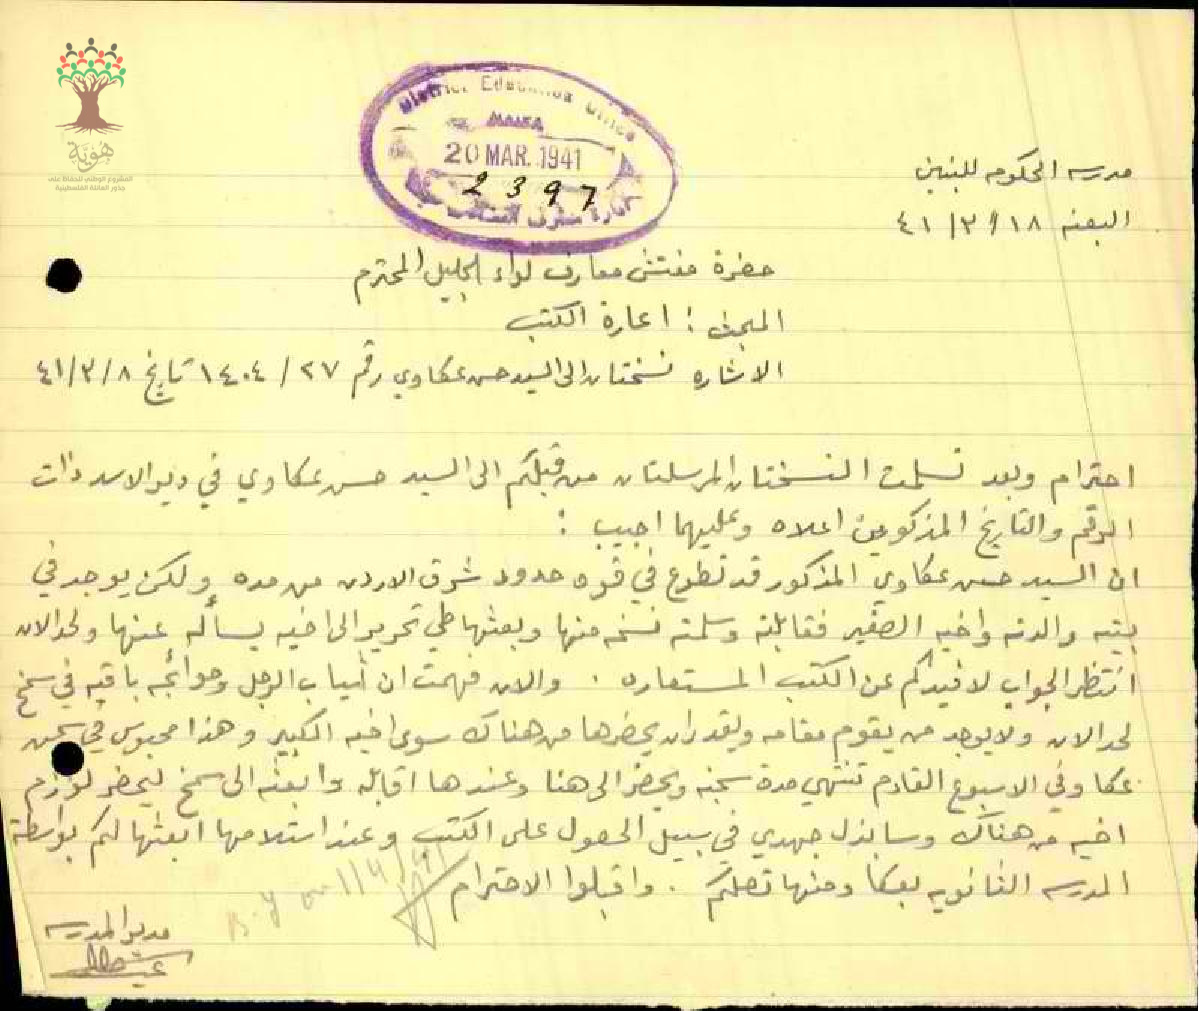 هوية
المشروع الوطني للحفاظ على
جذور العائلة الفلسطينية
District Education Office
HAIFA
20 MAR. 1941
2397
مدرسه الحكومه للبنين
البعنه ١٨/٣/٤١
حضرة مفتش معارف لواء الجليل المحترم
المبحث : اعارة الكتب
الاشاره نسختان الى السيد حسن عكاوي رقم ٢٧/١٤٠٤ تاريخ ٨/٣/٤١
احترام وبعد تسلمت النسختان المرسلتان من قبلكم الى السيد حسن عكاوي في دير الاسد ذات
الرقم والتاريخ المذكورين اعلاه وعليهما اجيب :
ان السيد حسن عكاوي المذكور قد تطوع في قوه حدود شرق الاردن من مده ولكن يوجد في
بيته والدته واخيه الصغير فقابلته وسلمته نسخه منها وبعثها طي تحرير الى اخيه يسأله عنها ولحد الان
انتظر الجواب لافيدكم عن الكتب المستعاره . والان فهمت ان ثياب الرجل وحوائجه باقيه في سمخ
لحد الان ولا يوجد من يقوم مقامه ويقدر ان يحضرها من هناك سوى اخيه الكبير وهذا محبوس في سجن
عكا وفي الاسبوع القادم تنتهي مدة سجنه ويحضر الى هنا وعندها اقابله وابعثه الى سمخ ليحضر لوازم
اخيه من هناك وسابذل جهدي في سبيل الحصول على الكتب وعند استلامها ابعثها لكم بواسطة
المدرسه الثانويه بعكا ومنها تصلكم . واقبلوا الاحترام
B.Y on 1/4/41
مدير المدرسه